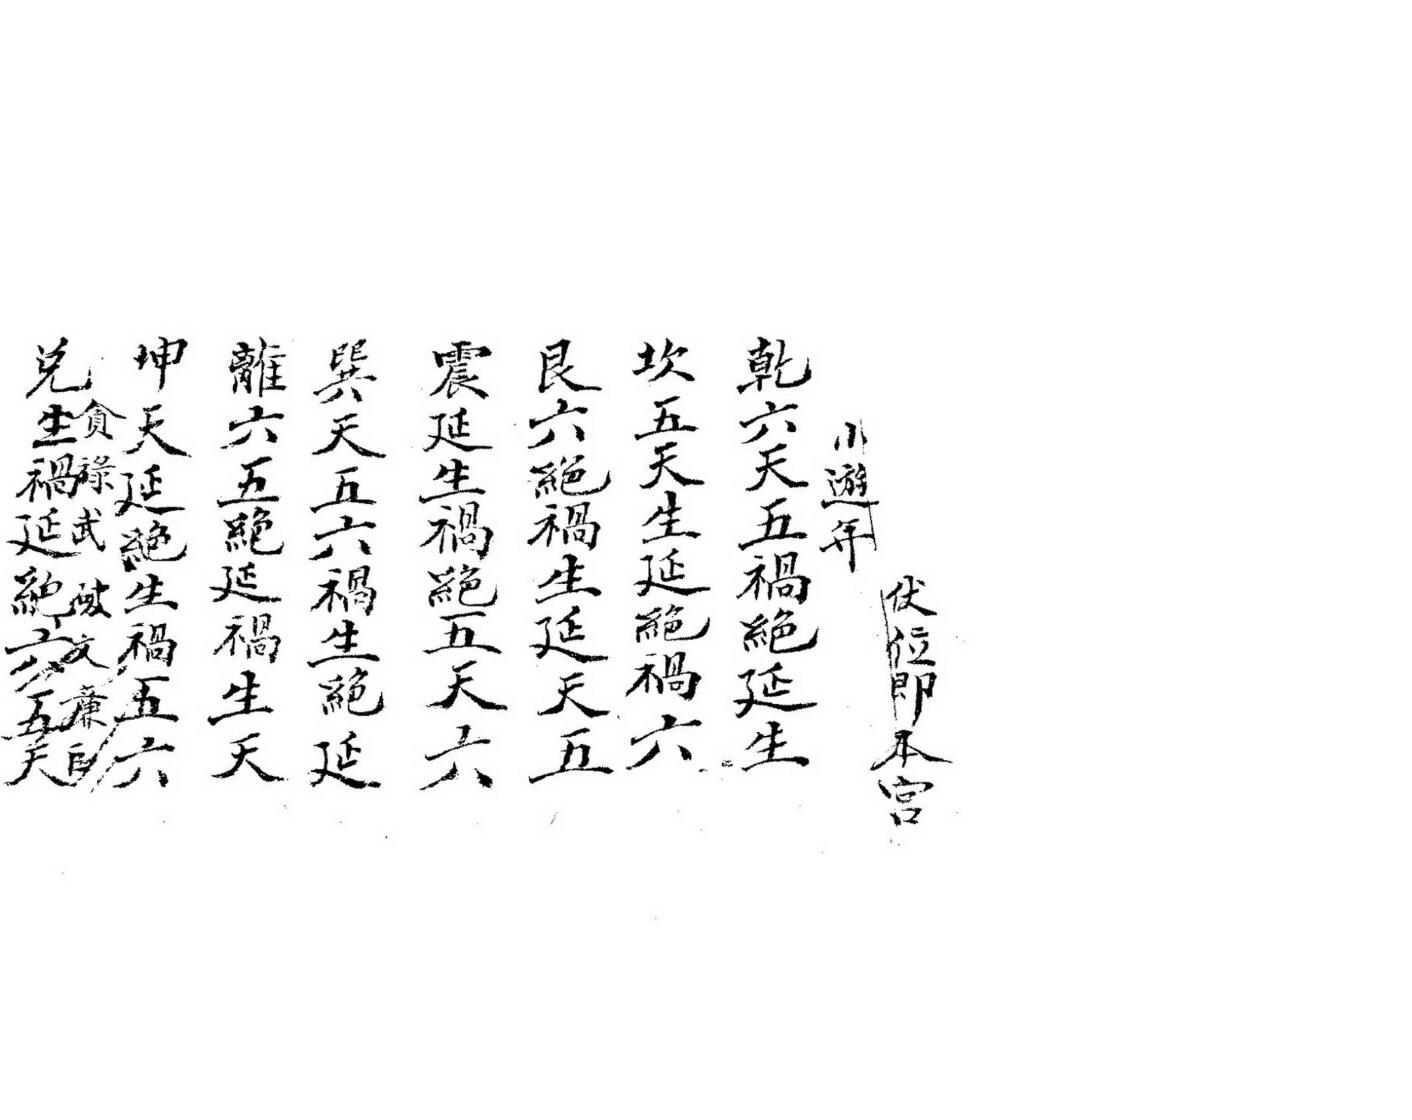 伏位即本宮
小遊年
乾六天五禍絕延生
坎五天生延絕禍六
艮六絕禍生延天五
震延生禍絕五天六
巽天五六禍生絕延
離六五絕延禍生天
坤天延絕生禍五六
貪祿武破文廉巨
兌生禍延絕六五天